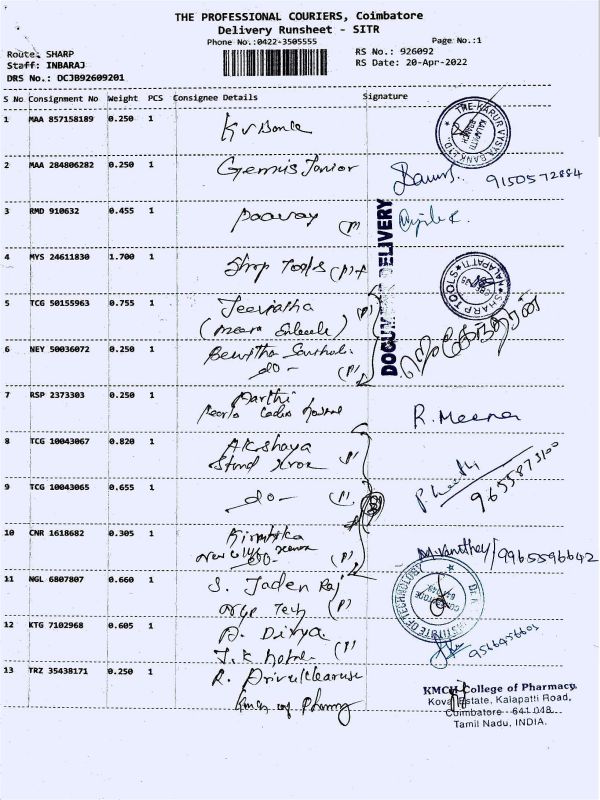 THE PROFESSIONAL COURIERS, Coimbatore
Delivery Runsheet - SITR
Phone No.:0422-3505555
Page No.:1
Route: SHARP
Staff: INBARAJ
DRS No.: DCJB92609201
RS No.: 926092
RS Date: 20-Apr-2022
S No Consignment No Weight PCS Consignee Details Signature
1 MAA 857158189 0.250 1
THE KARUR VYSYA BANK LTD
KALAPATTI BRANCH
2 MAA 284806282 0.250 1 Gemis Junior 9150572884
3 RMD 910632 0.455 1 poovay (P)
DOCUMENT DELIVERY
4 MYS 24611830 1.700 1 Shrp Tools (P)
SHARP TOOLS KALAPATTI
5 TCG 50155963 0.755 1 Jeevitha (P)
6 NEY 50036072 0.250 1
do - (P)
7 RSP 2373303 0.250 1 Aarthi
R. Meena
8 TCG 10043067 0.820 1 Akshaya
Stmd xrox (P)
9 TCG 10043065 0.655 1 do - (P) 9655873100
10 CNR 1618682 0.305 1 (P) M.Vanithey/9965596642
11 NGL 6807807 0.660 1 S. Jaden Raj
Tech (P)
INSTITUTE OF TECHNOLOGY
12 KTG 7102968 0.605 1 A. Divya (P) 9566456601
J.K hotel
13 TRZ 35438171 0.250 1 R.
Kmch of Pharmy
KMCH College of Pharmacy,
Kovai Estate, Kalapatti Road,
Coimbatore - 641 048.
Tamil Nadu, INDIA.